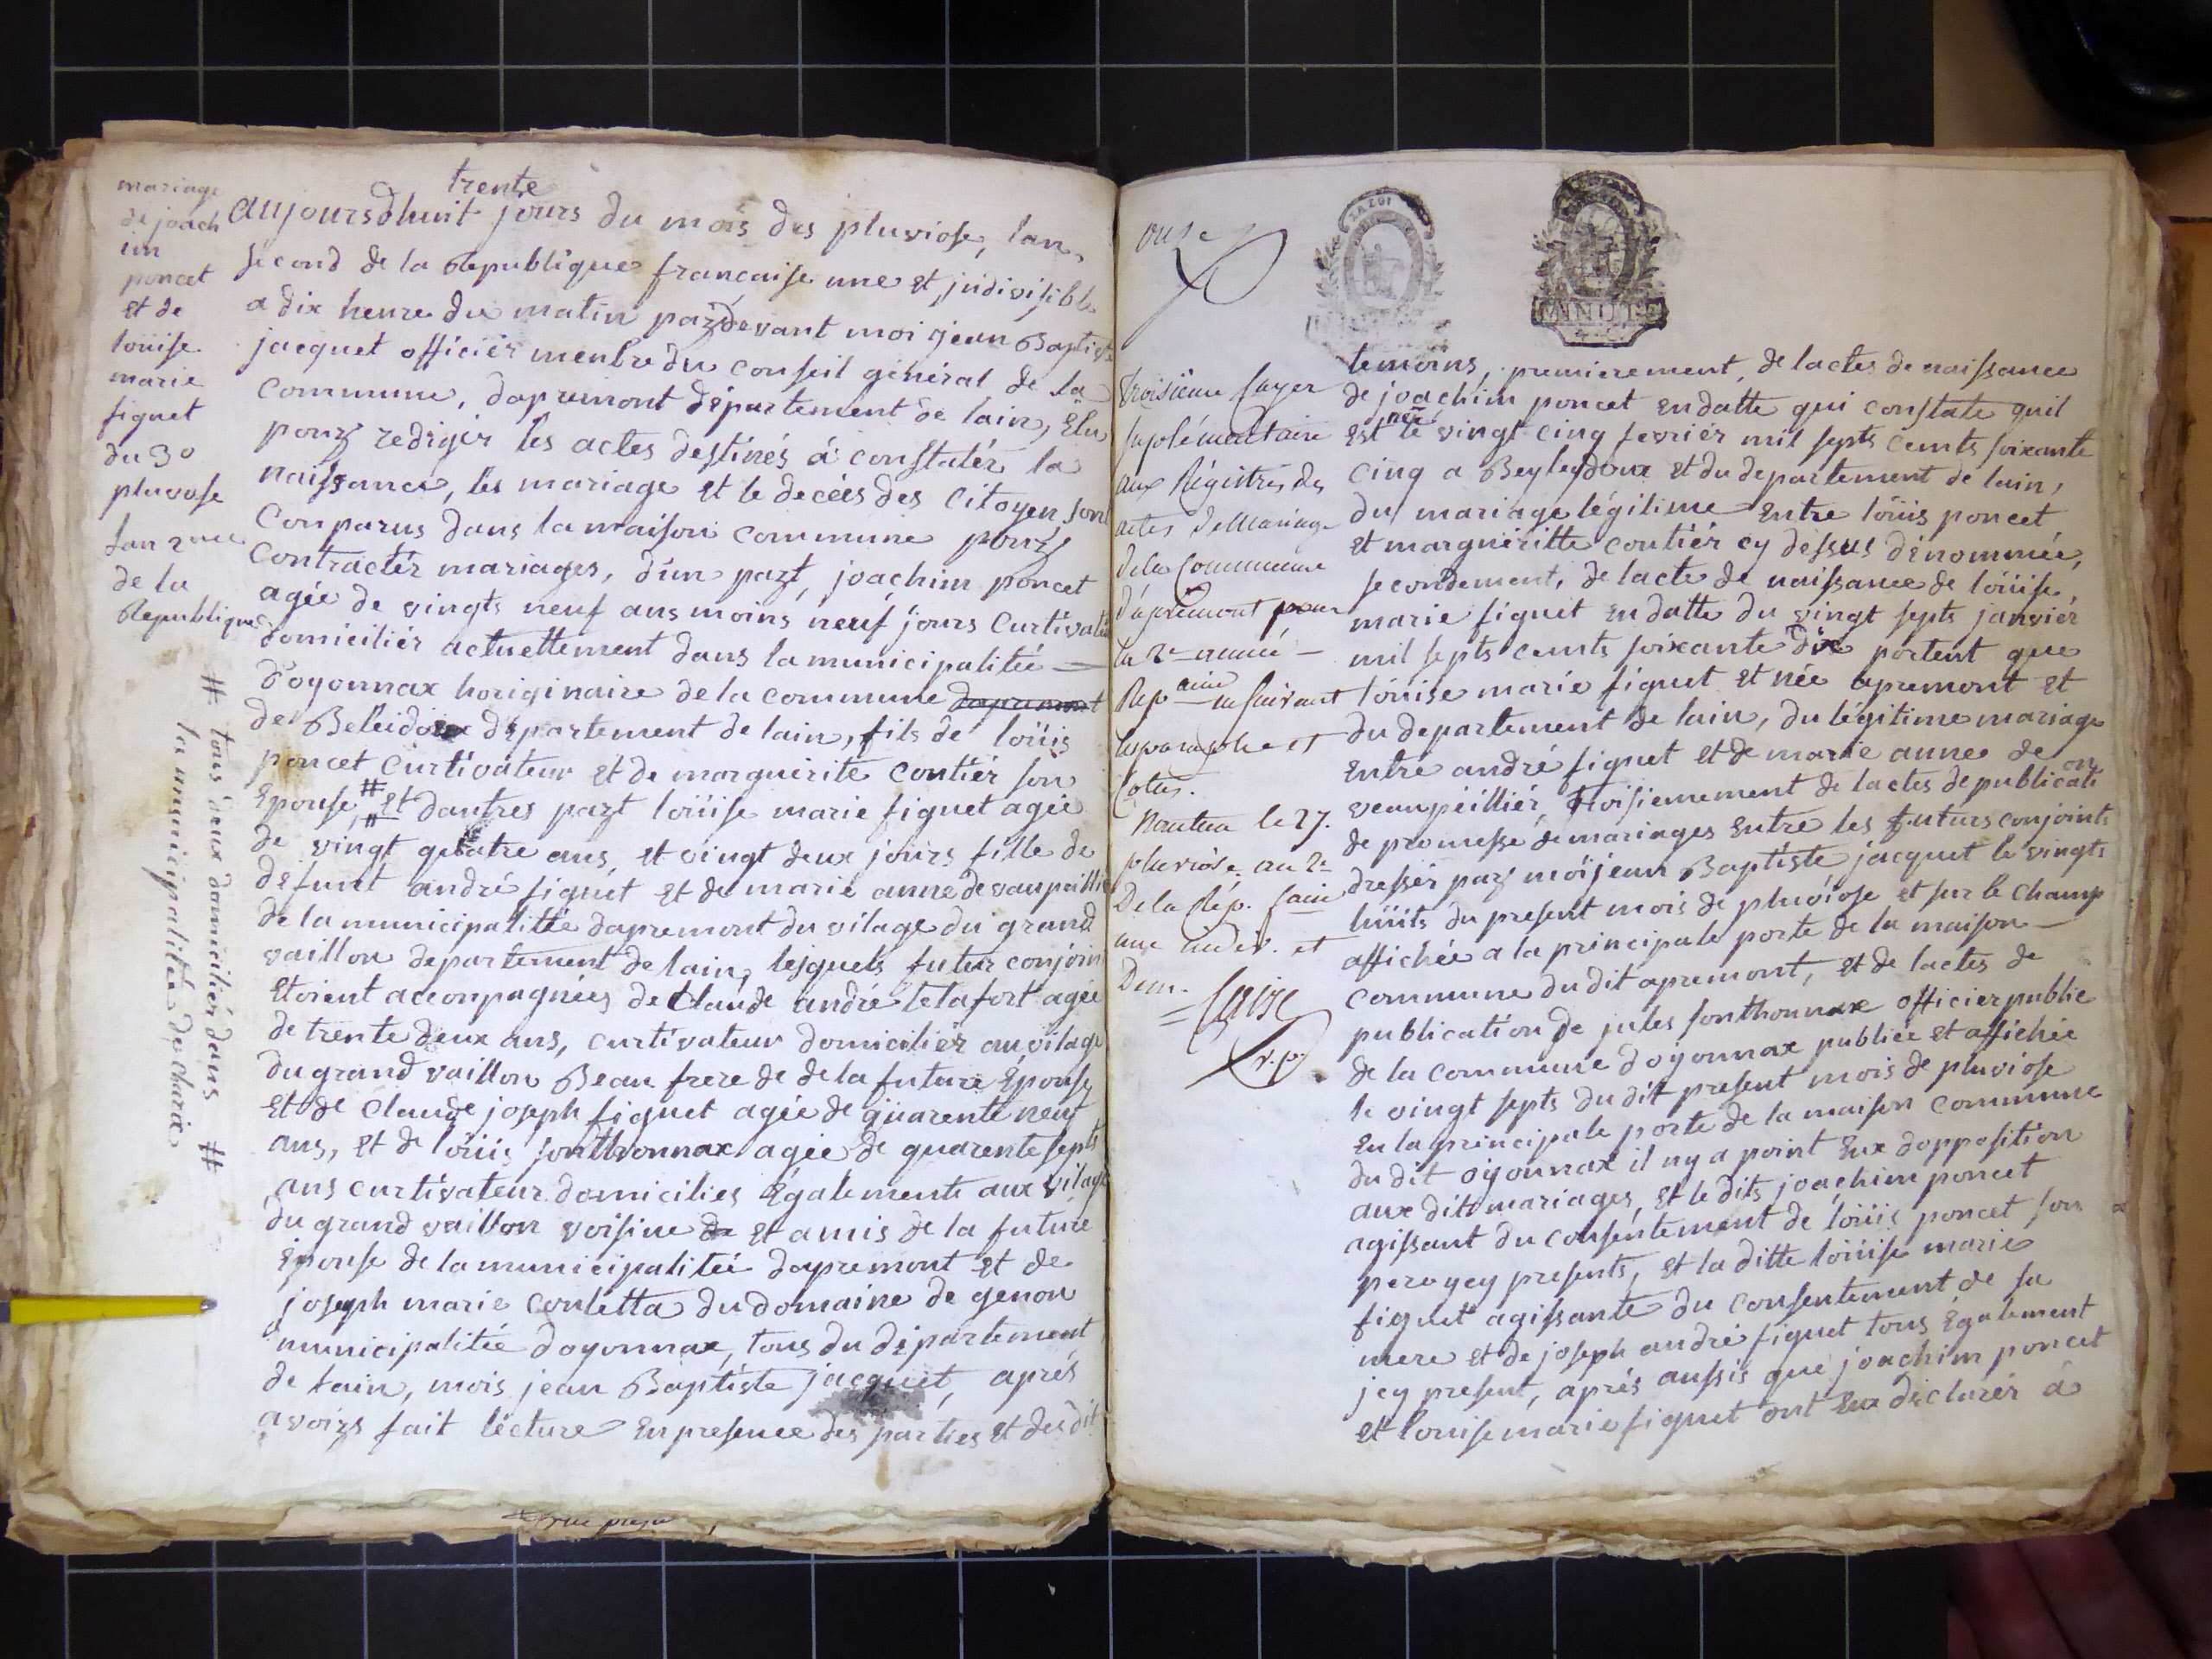 mariage
de joach
im
poncet
et de
loüise
marie
figuet
du 30
pluvose
lan 2me
de la
Republique
trente
aujoursdhuit jours du mois des pluviose, lan
second de la Republique francaise une et jndivisible
a dix heure du matin parz devant moi jean Baptiste
jacquet officiér menbre du conseil genéral de la
commune, dapremont département de lain, Elu
pourz redigér les actes destinés á constatér la
naissance, les mariage et le decées des citoyen, sont
conparus dans la maison commune pourz
contractér mariages, dun pazt, joachim poncet
agée de vingts neuf ans moins neuf jours curtivateur
domiciliér actuellement dans la municipalitée
doyonnax horiginaire de la commune dapremont
de Beleidoux département de lain, fils de loüis
poncet curtivateur et de marguerite contiér son
Epouse, # et dautres pazt loüise marie figuet agée
de vingt quatre ans, et vingt deux jours fille de
défunt andré figuet et de marie anne de vaupeillier
de la municipalitée dapremont du vilage du grand
vaillon departement de lain, lesquels futur conjoin
Etoient acconpagnées de Claude andré letafort agée
de trente deux ans, curtivateur domiciliér au vilage
du grand vaillon Beau frere de de la future Epouse
et de Claude joseph figuet agée de quarente neuf
ans, et de loüis sonthonnax agée de quarente septs
ans curtivateur domicilies Egalemente aux vilage
du grand vaillon voisine de et amis de la future
épouse de la municipalitée dapremont et de
joseph marie couletta du domaine de genou
municipalitée doyonnax, tous du département
de lain, mois jean Baptiste jacquet, aprés
avoirs fait lécture En presence des parties et des dit
# tous deux domiciliér dans #
la municipalitée de charix
onze
troisieme cayer
suplémentaire
aux Régistres des
actes de Mariage
de la Commune
d'apremont pour
la 2e année
Rep.aine en suivant
les paraphe et
Cottes.
Nantua le 27.
pluviôse an 2e
De la Rép. fcaise
une indiv. et
Dem.
v.p.
temoins, premierement, de lactes de naissance
de joachim poncet en datte qui constate quil
est née le vingt cinq fevriér mil septs cemts soixante
cinq a Beyleydoux et du departement de lain,
du mariage légitime entre loüis poncet
et margueritte contiér cy dessus dénommée,
secondement, de lacte de naissance de loüise
marie figuet en datte du vingt septs janviér
mil septs cemts soixante dix portent que
loüise marie figuet et née apremont et
du departement de lain, du légitime mariage
entre andré figuet et de marie anne de
veaupeilliér, troisiemement de lactes de publication
de promesse de mariages entre les futurs conjoints
dressér parz moi jean Baptiste jacquet le vingts
huits du present mois de pluviose et sur le champ
affichée a la principale porte de la maison
commune du dit apremont, et de lactes de
publication de jules sonthonnax officier public
de la commune doyonnax publiée et affichée
le vingt septs du dit present mois de pluviose
en la principale porte de la maison commune
du dit oyonnax il ny a point eux dopposition
aux dits mariages, et le dits joachim poncet
agissant du consentement de loüis poncet son
pere ycy presents, et la ditte loüise marie
figuet agissante du consentement de sa
mere et de joseph andré figuet tous Egalement
jcy present, aprés aussis que joachim poncet
et louise marie figuet ont eux déclarér á